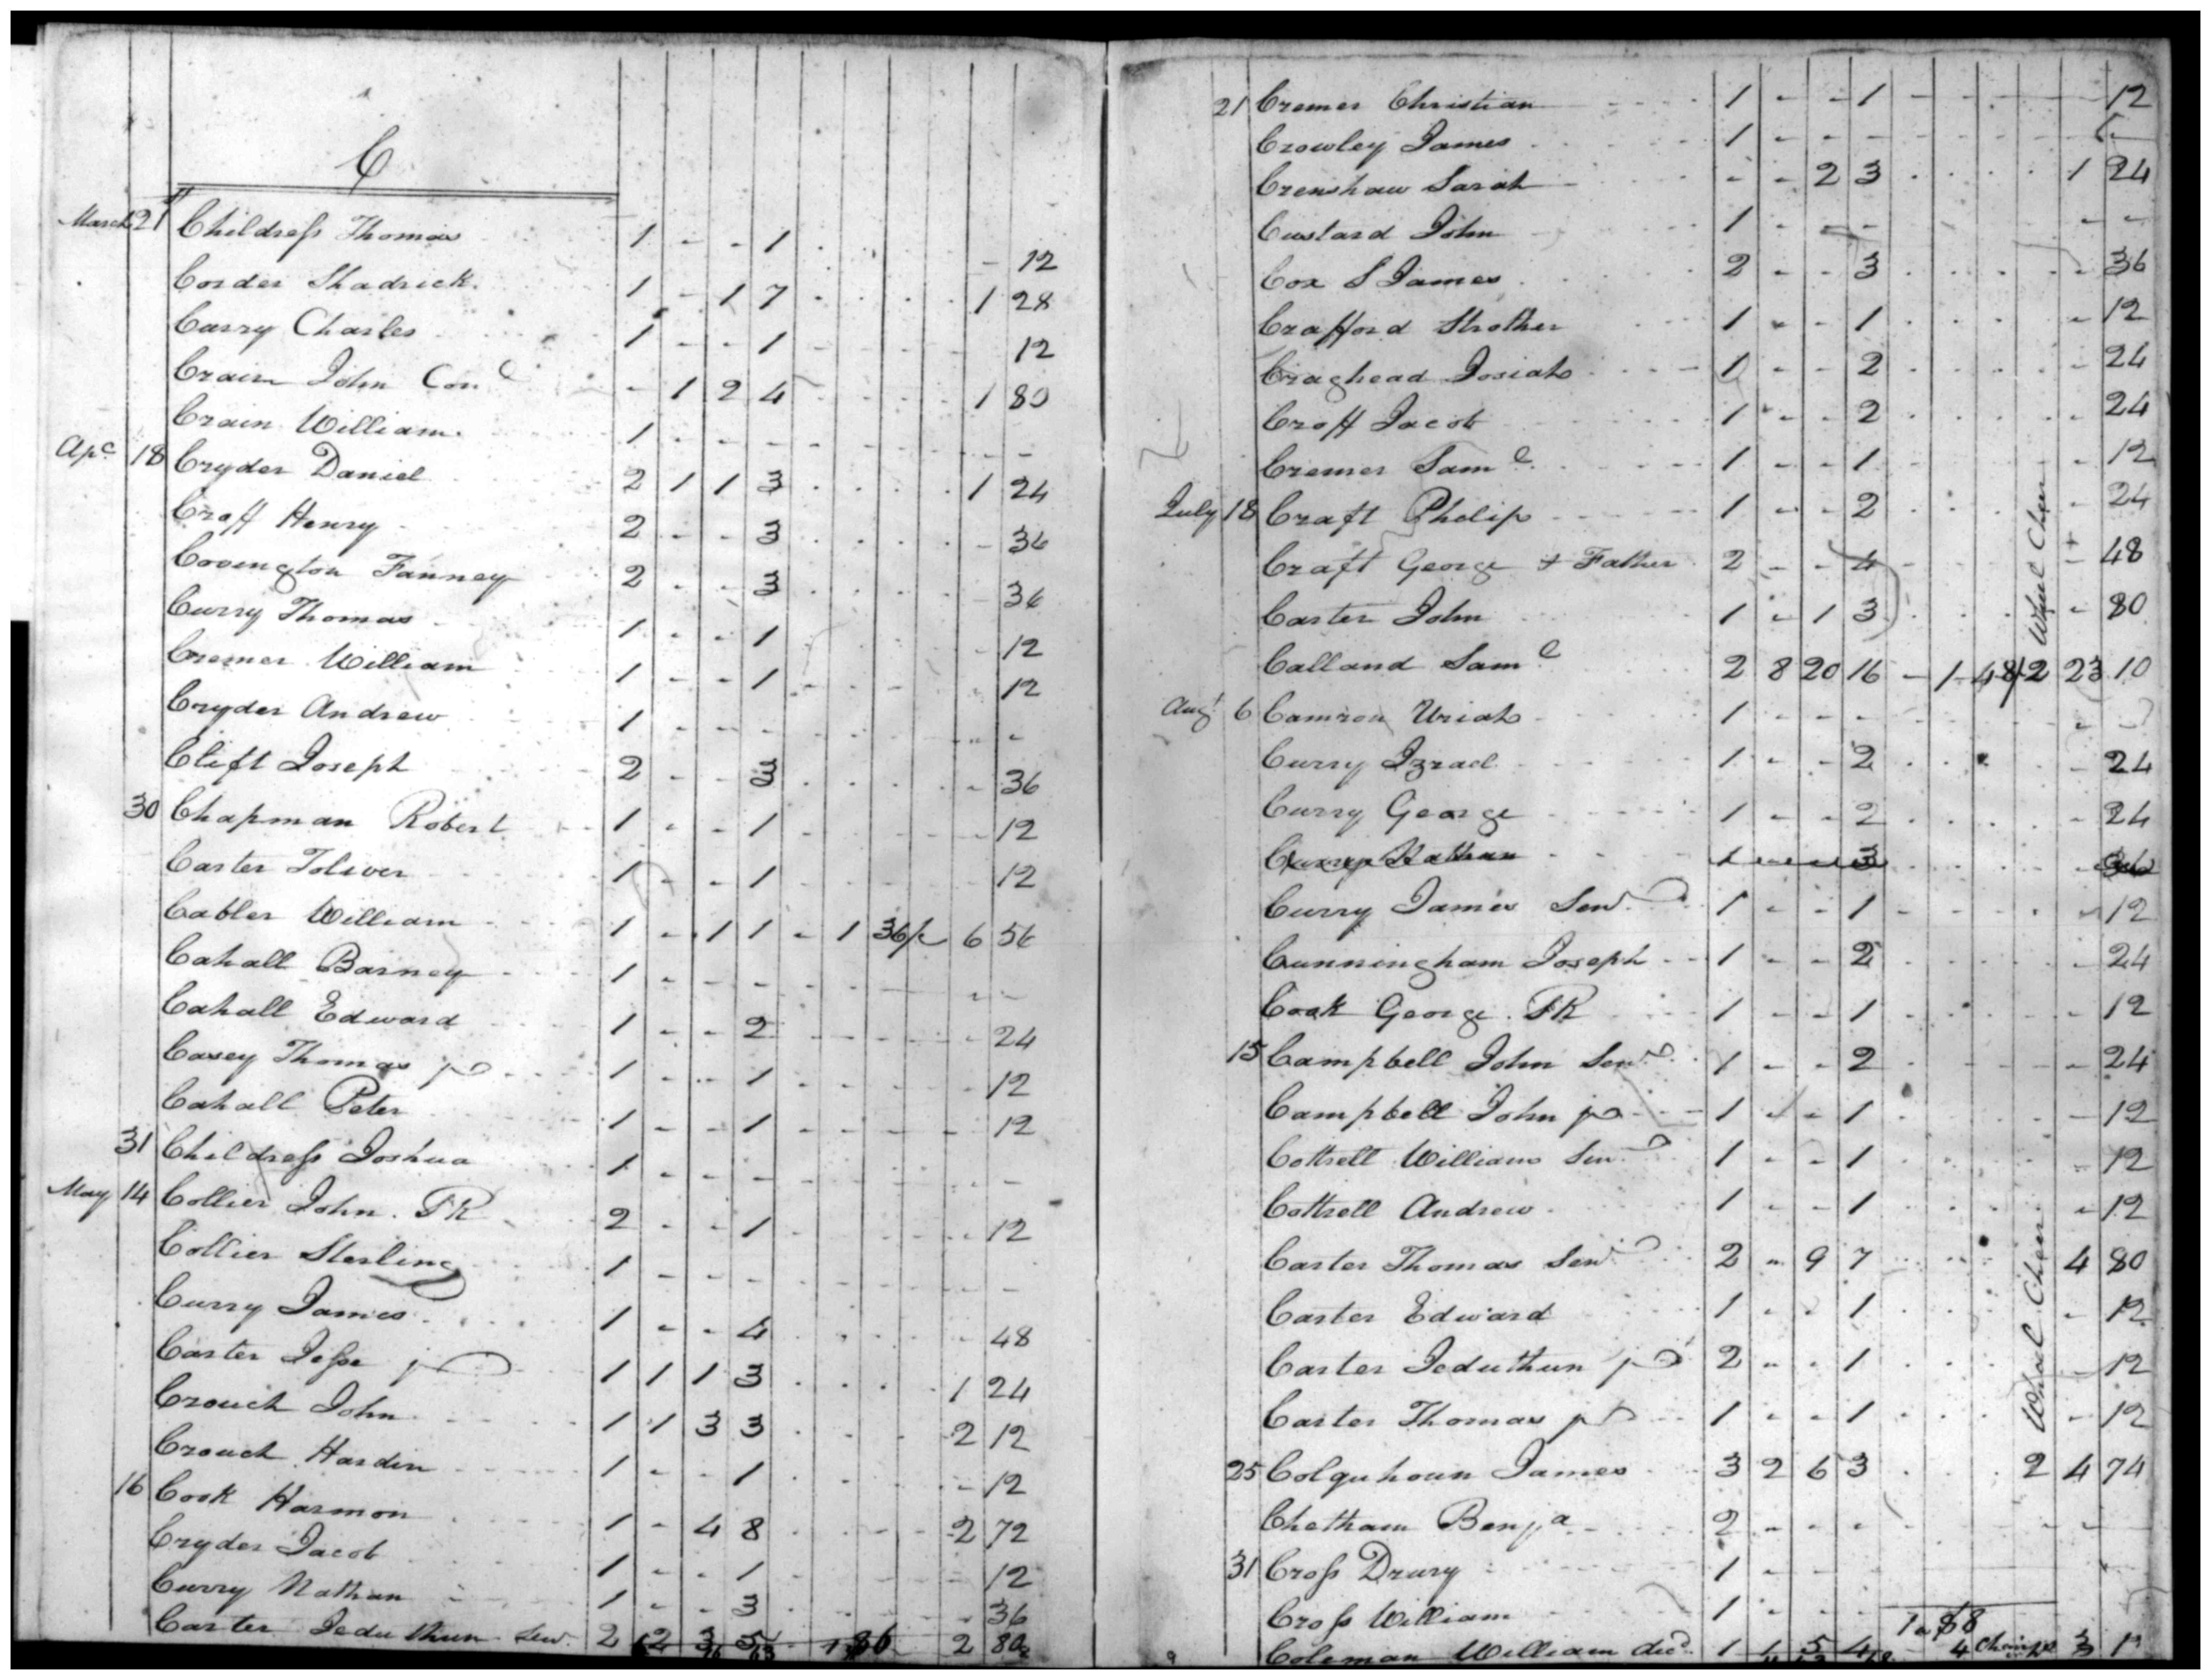 C
March 21 Childress Thomas 1 - - 1 - 12
Corder Shadrick 1 - 1 7 1 28
Curry Charles 1 - - 1 12
Crain John Con - 1 2 4 1 80
Crain William 1 - - - - -
18 Cryder Daniel 2 1 1 3 1 24
Croff Henry 2 - - 3 - 36
Covington Fanney 2 - - 3 - 36
Curry Thomas 1 - - 1 12
Cremer William 1 - - 1 12
Cryder Andrew 1 - - - - -
Clift Joseph 2 - - 3 - 36
30 Chapman Robert 1 - - 1 - 12
Carter Toliver 1 - - 1 12
Cabler William 1 - 1 1 - 1 36/ 6 56
Cahall Barney 1 - - - - -
Cahall Edward 1 - - 2 - 24
Casey Thomas jr 1 - - 1 - 12
Cahall Peter 1 - - 1 - 12
31 Childress Joshua 1 - - - - -
May 14 Collier John. PR 2 - - 1 - 12
Collier Sterling 1 - - - - -
Curry James 1 - - 4 - 48
Carter Jesse jr 1 1 1 3 1 24
Crouch John 1 1 3 3 2 12
Crouch Hardin 1 - - 1 - 12
16 Cook Harmon 1 - 4 8 2 72
Cryder Jacob 1 - - 1 - 12
Curry Nathan 1 - - 3 - 36
Carter Jeduthun Sen. 2 2 3 5 2 80
21 Cremer Christian 1 - - 1 - 12
Crowley James 1 - - - -
Crenshaw Sarah - - 2 3 1 24
Custard John 1 - - - - -
Cox S James 2 - - 3 - 36
Crafford Strother 1 - - 1 - 12
Craghead Josiah 1 - - 2 - 24
Croff Jacob 1 - - 2 - 24
Cremer Saml 1 - - 1 - 12
July 18 Craft Philip 1 - - 2 - 24
Craft George & Father 2 - - 4 - 48
Carter John 1 - 1 3 - 80
Calland Saml 2 8 20 16 - 1 48/ 2 23 10
Wheel Chair
Augt 6 Camron Uriah 1 - - - - -
Curry Izrael 1 - - 2 - 24
Curry George 1 - - 2 - 24
Curry Nathan 1 - - 3 36
Curry James Senr 1 - - 1 - 12
Cunningham Joseph 1 - - 2 - 24
Cook George. PR 1 - - 1 - 12
15 Campbell John Senr 1 - - 2 - 24
Campbell John jr 1 - - 1 - 12
Cottrell William Senr 1 - - 1 - 12
Cottrell Andrew 1 - - 1 - 12
Carter Thomas Senr 2 - 9 7 4 80
Carter Edward 1 - - 1 - 12
Carter Jeduthun jr 2 - - 1 - 12
Carter Thomas jr 1 - - 1 - 12
25 Colquhoun James 3 2 6 3 2 4 74
Wheel Chair
Chetham Benja 2 - - - - -
31 Cross Drury 1 -
Cross William 1 - -
Coleman William decd 1 1 5 4